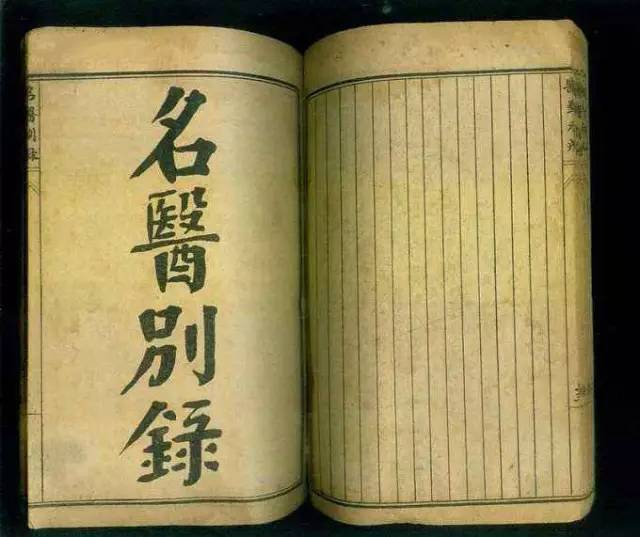 名醫別錄
名醫別錄